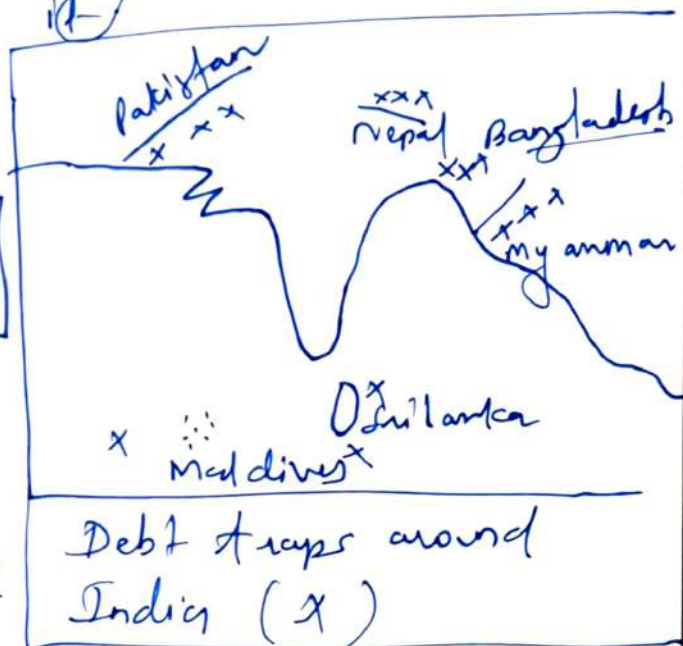 Pakistan
x x x
xxx
Nepal Bangladesh
xxx
x x x
Myanmar
x
Srilanka
x
Maldives x
Debt traps around
India (x)